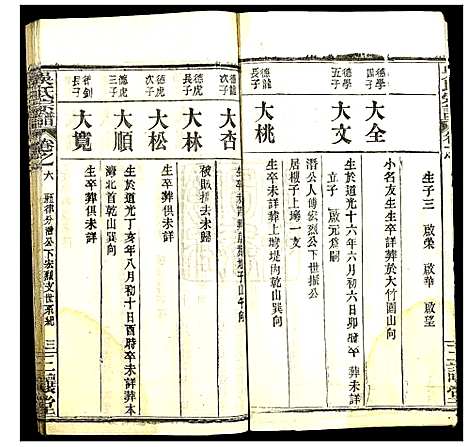 生子三 啟榮 啟華 啟望
德學
四子
大全
小名友生生卒詳葬於大竹園山向
德學
五子
大文
生於道光十六年六月初六日卯時卒葬未詳
立子 啟元為嗣
潛公人傳宏烈公下世振公
居櫃子上塆一支
德龍
長子
大桃
生卒未詳葬上塆堤內乾山巽向
德虎
次子
大杏
德虎
長子
大林
被賊擄去未歸
德虎
次子
大松
生卒葬俱未詳
德虎
三子
大順
生於道光丁亥年八月初十日酉時卒未詳葬本
灣北首乾山巽向
德劍
長子
大寬
生卒葬俱未詳
吳氏宗譜
卷之
六
三
讓堂